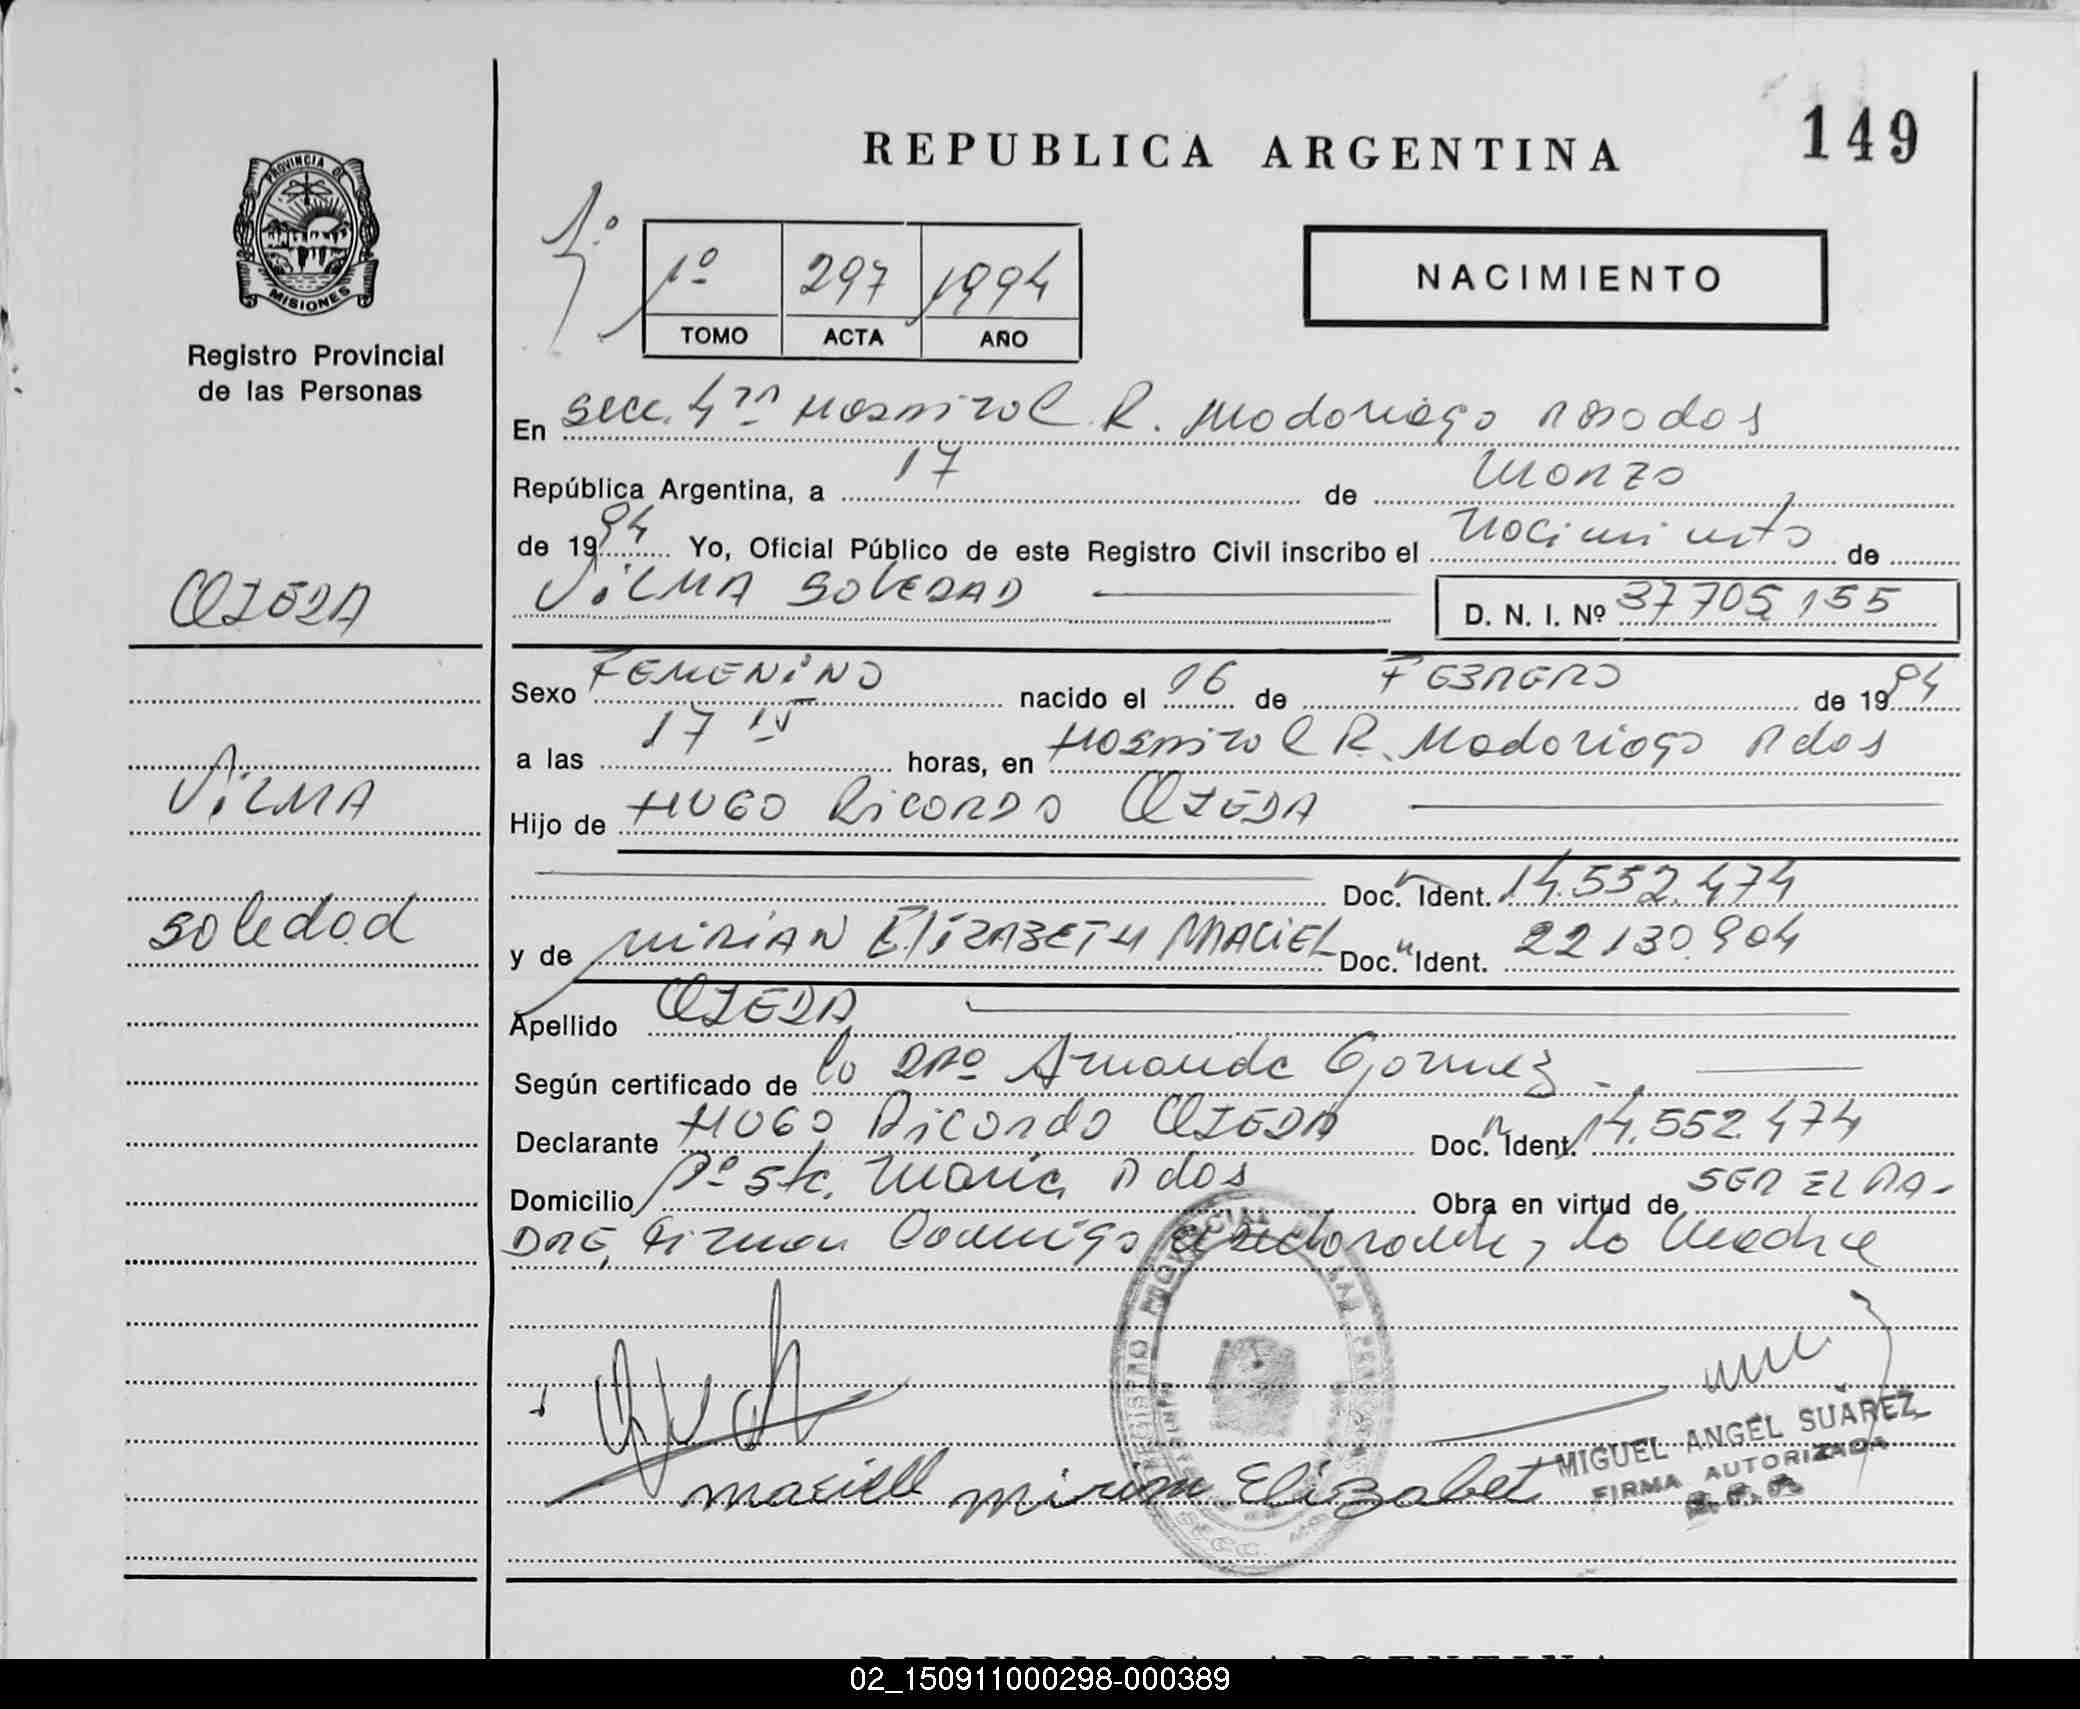 149
REPUBLICA ARGENTINA
PROVINCIA DE
MISIONES
Registro Provincial
de las Personas
1º 297 1994
TOMO ACTA AÑO
NACIMIENTO
En Secc. 4ta Hospital R. Madariaga Posadas
República Argentina, a 17 de Marzo
de 1994 Yo, Oficial Público de este Registro Civil inscribo el Nacimiento de
VILMA SOLEDAD D. N. I. Nº 37705155
OJEDA
VILMA
Soledad
Sexo FEMENINO nacido el 16 de FEBRERO de 1994
a las 17 horas, en Hospital R. Madariaga Pdas
Hijo de HUGO Ricardo OJEDA
Doc. Ident. 14.552.474
y de MIRIAN ELIZABETH MACIEL Doc. Ident. 22130.904
Apellido OJEDA
Según certificado de la Dra Amanda Gomez
Declarante HUGO Ricardo OJEDA Doc. Ident. 14.552.474
Domicilio Bº Sta. Maria Pdas Obra en virtud de SER EL PA-
DRE, Firman Conmigo el declarante, la Madre
maciell miriam Elizabet
MIGUEL ANGEL SUAREZ
FIRMA AUTORIZADA
REPUBLICA ARGENTINA
02_150911000298-000389